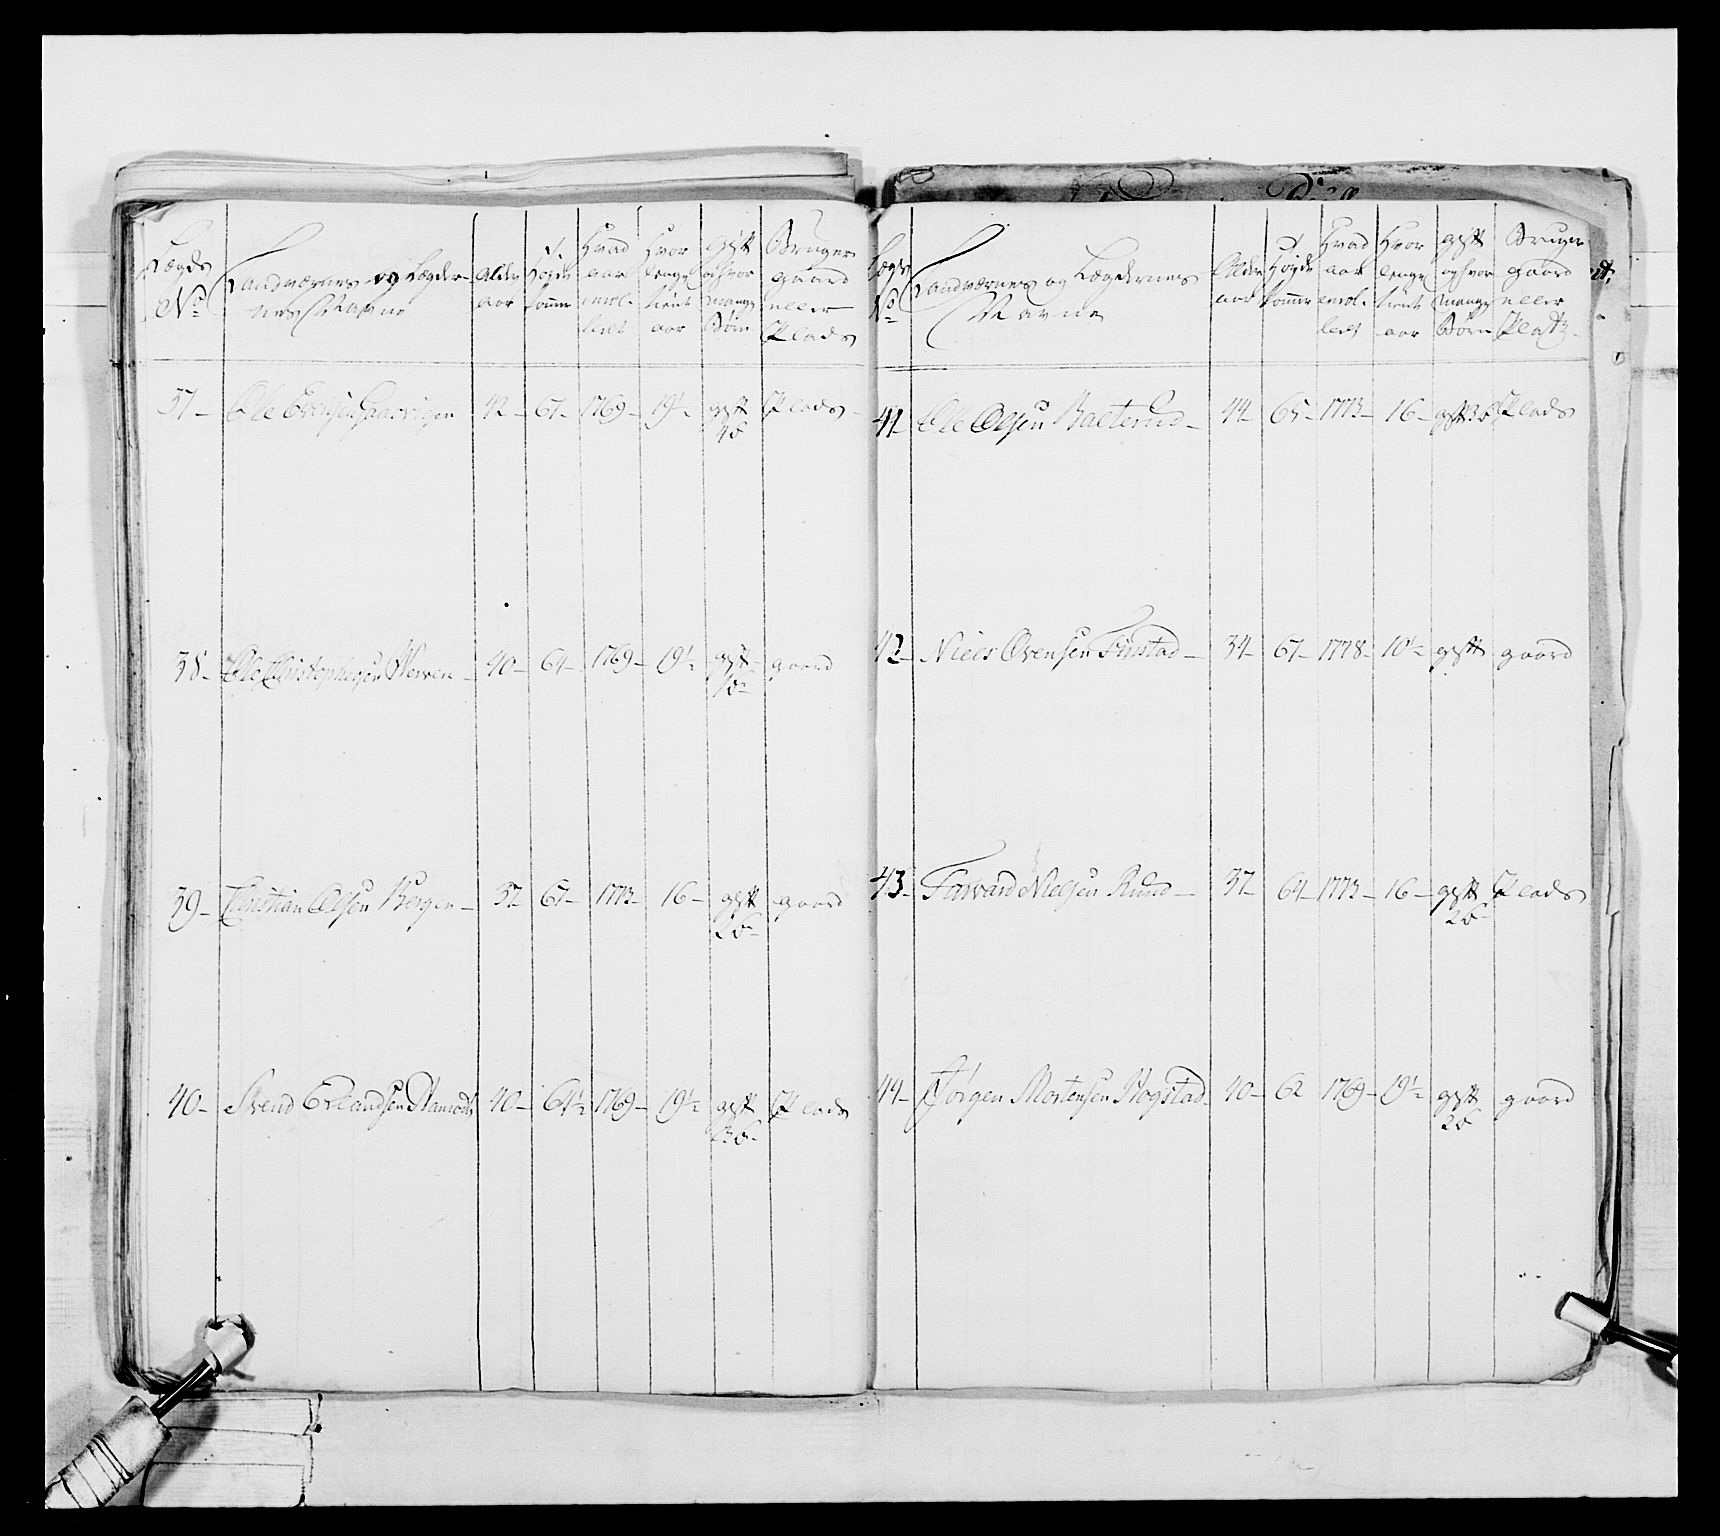 Lægds No
Landværnes og Lægder-nes Navne
Alder aar
Høyde tommer
Hvad aar enrol-lert
Hvor lenge tient aar
gift og hvor mange Børn
Bruger gaard eller Plads
37 - Ole 42 - 67 - 1769 - 19½ gift 4b Plads -
38 - Ole Christophersen 40 - 64 - 1769 - 19½ gift gaard
39 - Christian Olsen Bergen - 37 67 - 1773 - 16 - gift 2b gaard
40 - Svend Erlandsen 40 - 64½ 1769 - 19½ gift 3b Plads
Lægs No
Landværnes og Lægdernes Navne
Alder aar
Høyde tommer
Hvad aar enrol-lert
Hvor lenge tient aar
gift og hvor mange Børn
Bruger gaard eller Platz
41 - Ole Olsen 44 - 65 - 1773 - 16 - gift 3b Plads
42 - Niels Evensen Finstad - 34 - 67 - 1778 - 10½ gift gaard
43 - Nielsen Ruud - 37 - 64 - 1773 - 16 - gift 2b Plads
44 - Jørgen Mortensen Hogstad - 40 - 62 1769 - 19½ gift 2b gaard